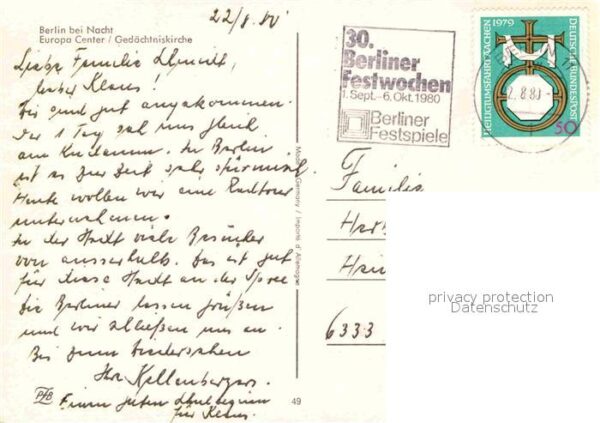 Berlin bei Nacht
Europa Center / Gedächtniskirche
22/8.80
Liebe Familie Schmidt,
lieber Klaus!
Sind gut angekommen.
Der 1 Tag sah uns gleich
am Kudamm. In Berlin
ist es zur Zeit sehr stürmisch
Heute wollen wir eine Radtour
unternehmen.
In der Stadt viele Besucher
von ausserhalb. Das ist gut
für diese Stadt an der Spree
Die Berliner lassen grüßen
und wir schließen uns an.
Bis zum Wiedersehen
Ihre Kellenbergers.
Einen guten Schulbeginn
für Klaus.
PHB
49
Germany / Importé d'Allemagne
30.
Berliner
Festwochen
1. Sept.-6. Okt. 1980
Berliner
Festspiele
HEILTUMSFAHRT AACHEN 1979
DEUTSCHE BUNDESPOST
50
.8.80
Familie
6333
privacy protection
Datenschutz